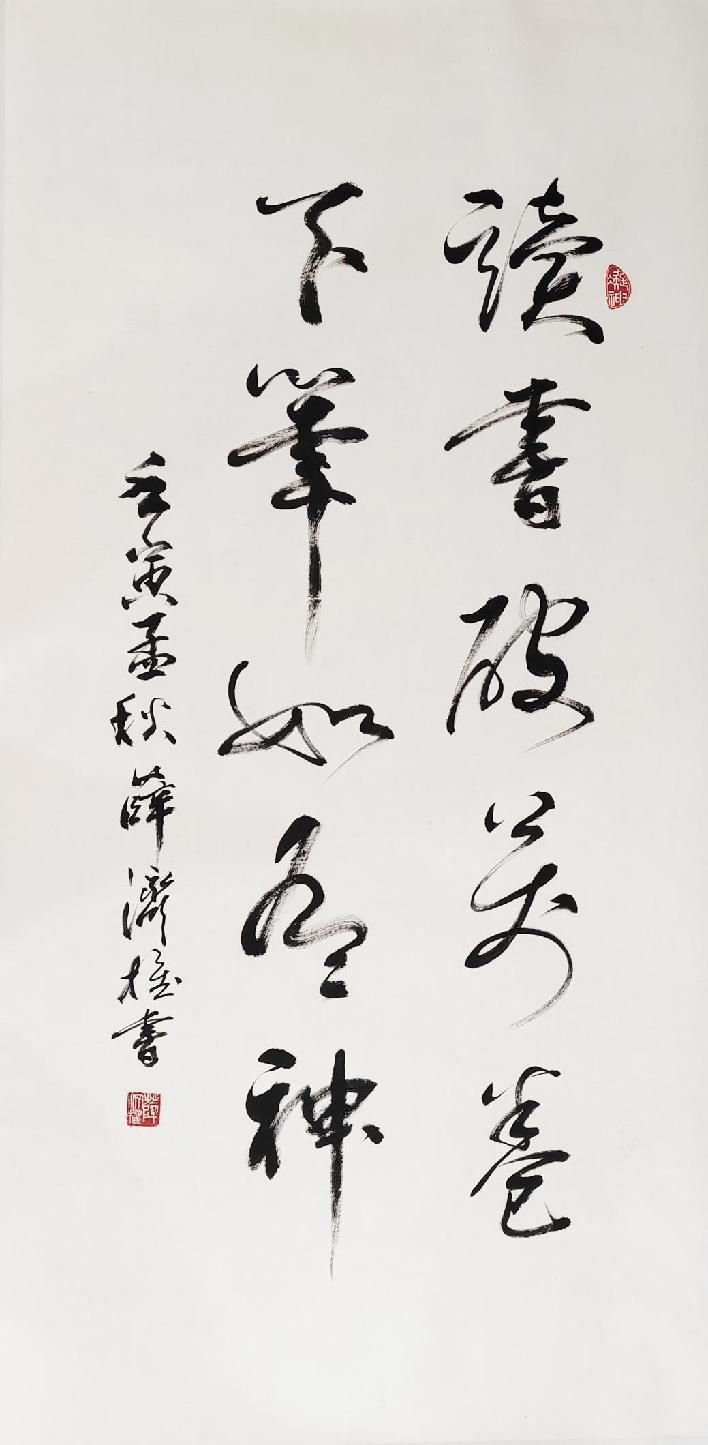 讀書破萬卷
下筆如有神
壬寅孟秋薛濟權書